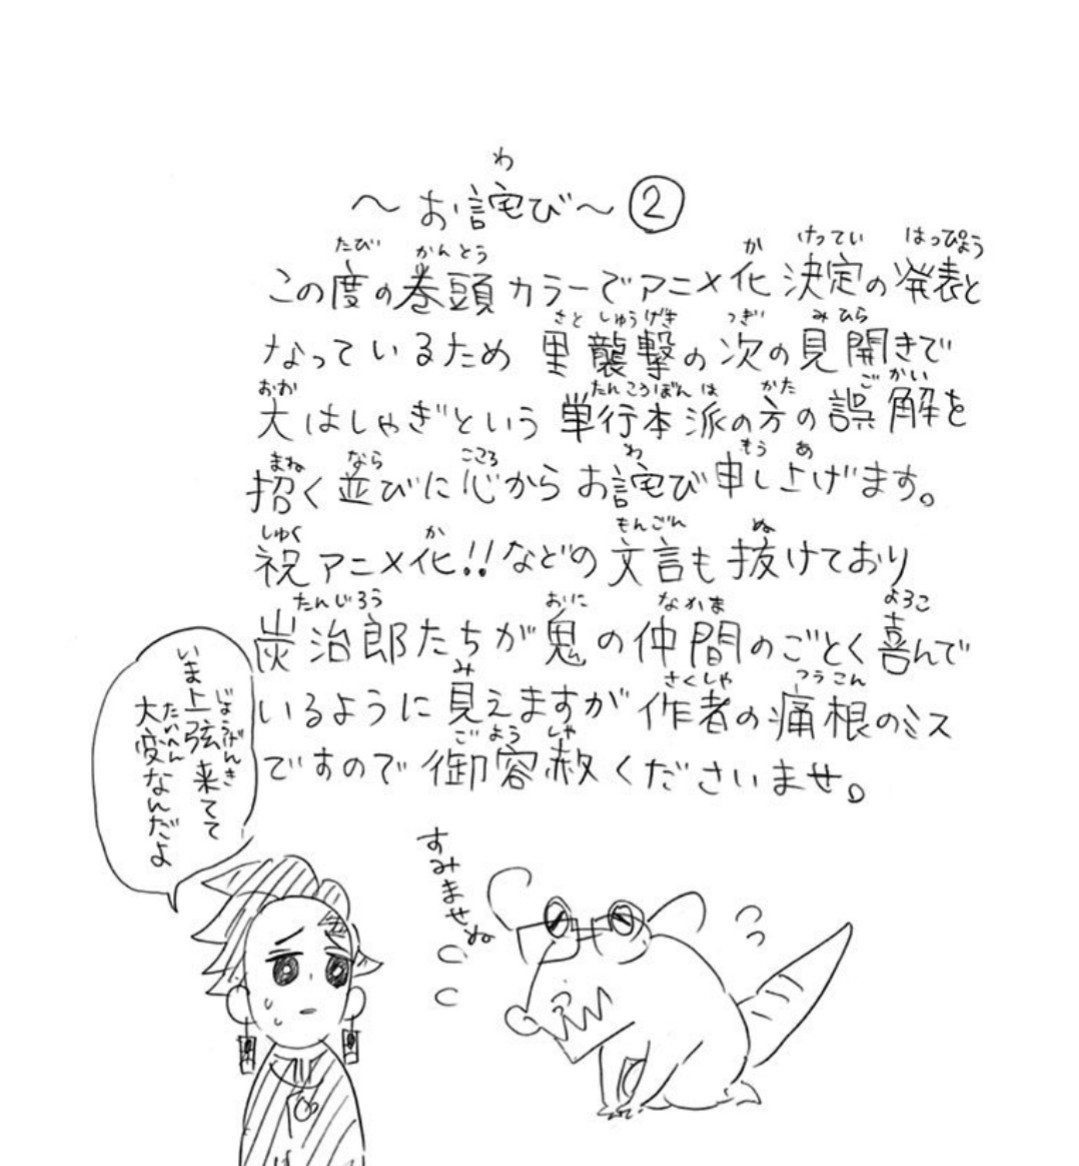 ～お詫び～②
この度の巻頭カラーでアニメ化決定の発表と
なっているため里襲撃の次の見開きで
大はしゃぎという単行本派の方の誤解を
招く並びに心からお詫び申し上げます。
祝アニメ化!!などの文言も抜けており
炭治郎たちが鬼の仲間のごとく喜んで
いるように見えますが作者の痛根のミス
ですので御容赦くださいませ。
いま上弦来てて
大変なんだよ
すみませぬ